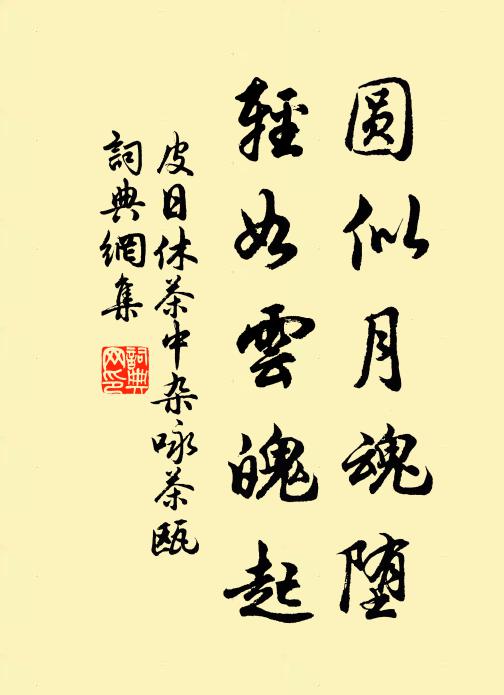 圆似月魂堕
輕如雲魄起
皮日休茶中杂咏茶甌
詞典網集
詞典网印